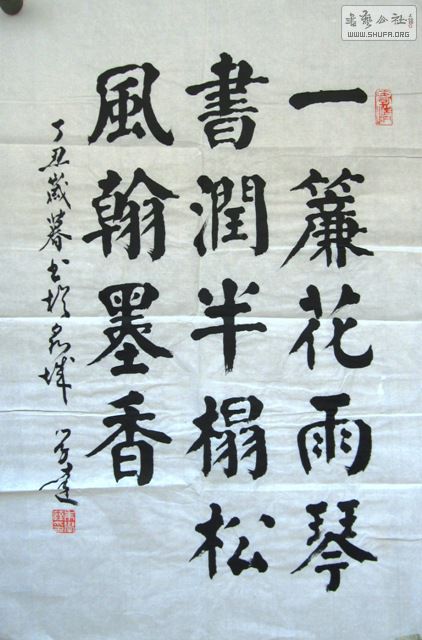 一簾花雨琴
書潤半榻松
風翰墨香
丁丑歲暮書於泉城
書艺公社
WWW.SHUFA.ORG